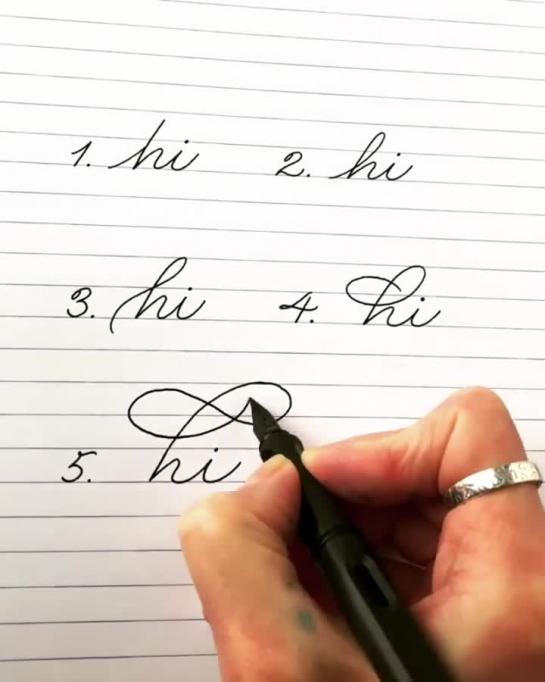 1. hi 2. hi
3. hi 4. hi
5. hi